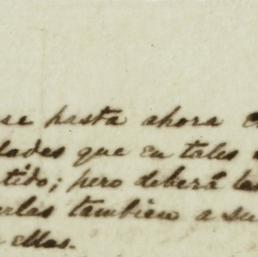 se hasta ahora
dades que en tales
tido; pero deberá
erlas tambien a su
ellas.